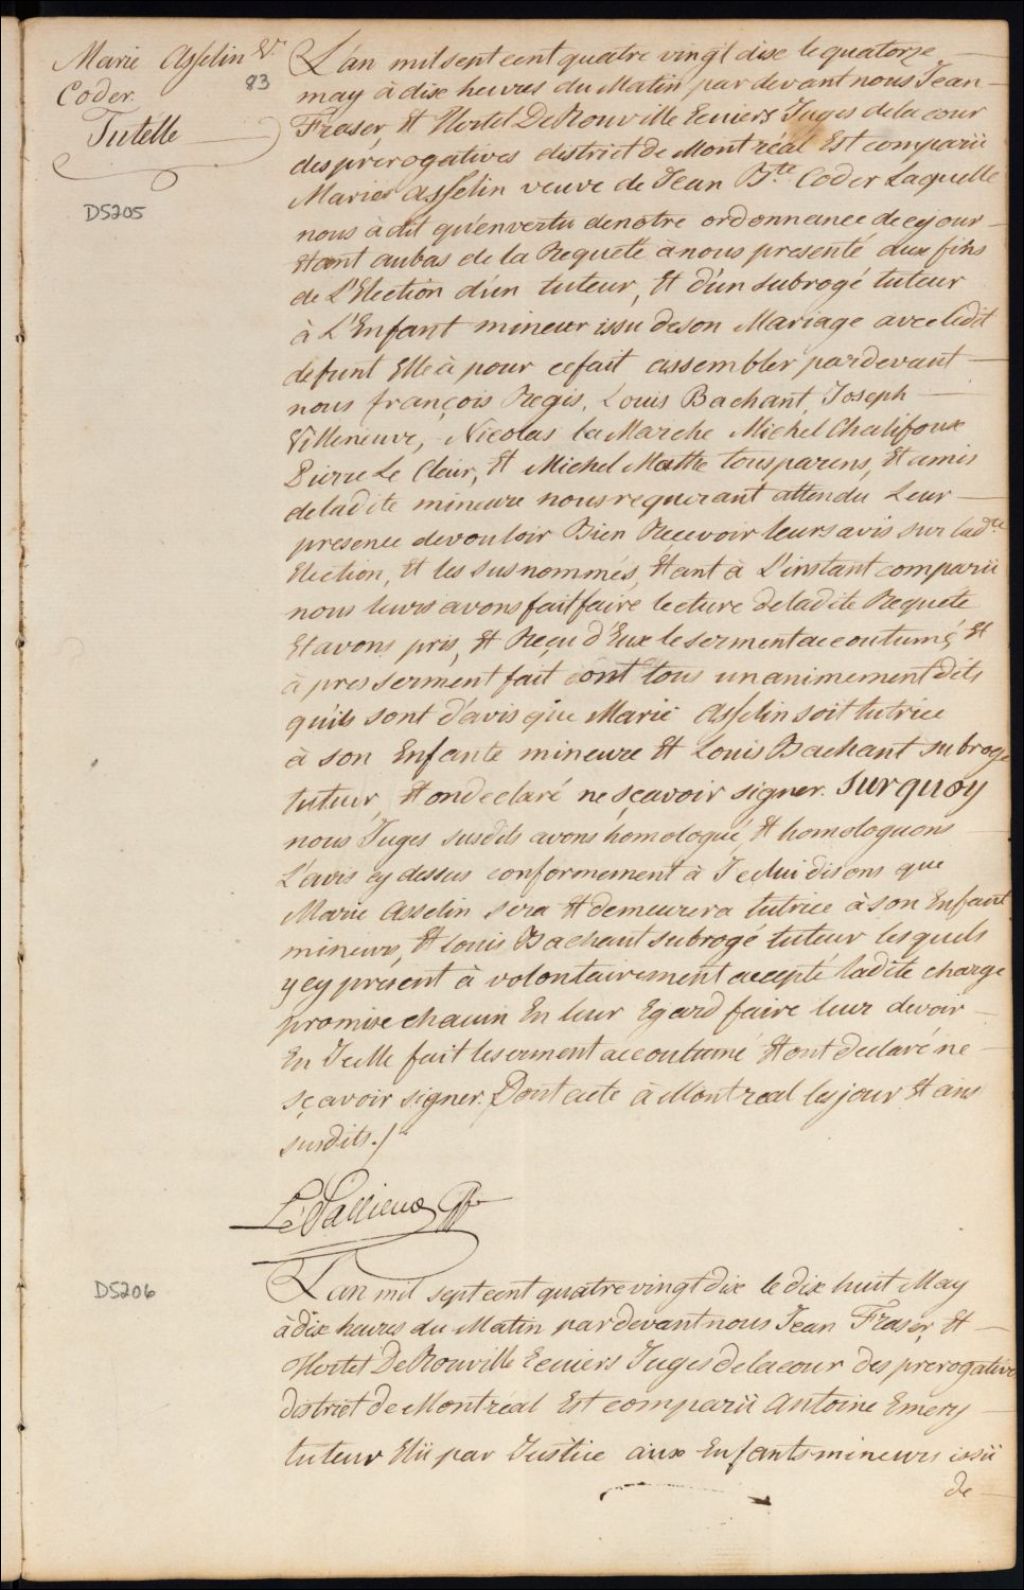 Marie Asselin Ve.
Coder.
83
Tutelle
DS205
L'an mil sept cent quatre vingt dix le quatorze
may à dix heures du Matin par devant nous Jean
Fraser, Et Hertel De Rouville Ecuiers Juges de la cour
des prérogatives district de Montréal Est comparü
Marie Asselin veuve de Jean Bte. Coder Laquelle
nous à dit qu'en vertu de notre ordonnance de ce jour
Etant au bas de la Requete à nous presenté aux fins
de L'Election d'un tuteur, Et d'un subrogé tuteur
à L'Enfant mineur issu de son Mariage avec ledit
defunt Elle à pour ce fait assembler par devant
nous françois Regis, Louis Bachant, Joseph
Villeneuve, Nicolas la Marche Michel Chalifoux
Pierre Le Clair, Et Michel Mathe tous parens, Et amis
de ladite mineure nous requerant attendu Leur
presence de vouloir Bien Recevoir leurs avis sur lade.
Election, Et les susnommés, Etant à L'instant comparü
nous leurs avons fait faire lecture de ladite Requete
Et avons pris, Et Reçu d'Eux le serment accoutumé, Et
à pres serment fait iont tous unanimement dits
qu'ils sont d'avis que Marie Asselin soit tutrice
à son Enfante mineure Et Louis Bachant subrogé
tuteur, Et on declaré ne sçavoir signer. Sur quoy
nous Juges susdits avons homologué, Et homologuons
L'avis cy dessus conformement à Icelui disons que
Marie Asselin sera Et demeurera tutrice à son Enfant
mineure, Et Louis Bachant subrogé tuteur lesquels
y cy présent à volontairement accepté ladite charge
promise chacun En leur Egard faire leur devoir
En Icelle fait le serment accoutumé Et ont declaré ne
sçavoir signer. Dont acte à Montréal les jour Et ans
susdits./.
LePallieur Gff
DS206
L'an mil sept cent quatre vingt dix le dix huit May
à dix heures du Matin par devant nous Jean Fraser, Et
Hertel De Rouville Ecuiers Juges de la cour des prerogative
district de Montréal Est comparü Antoine Emery
tuteur Elü par Justice aux Enfants mineurs issü
de